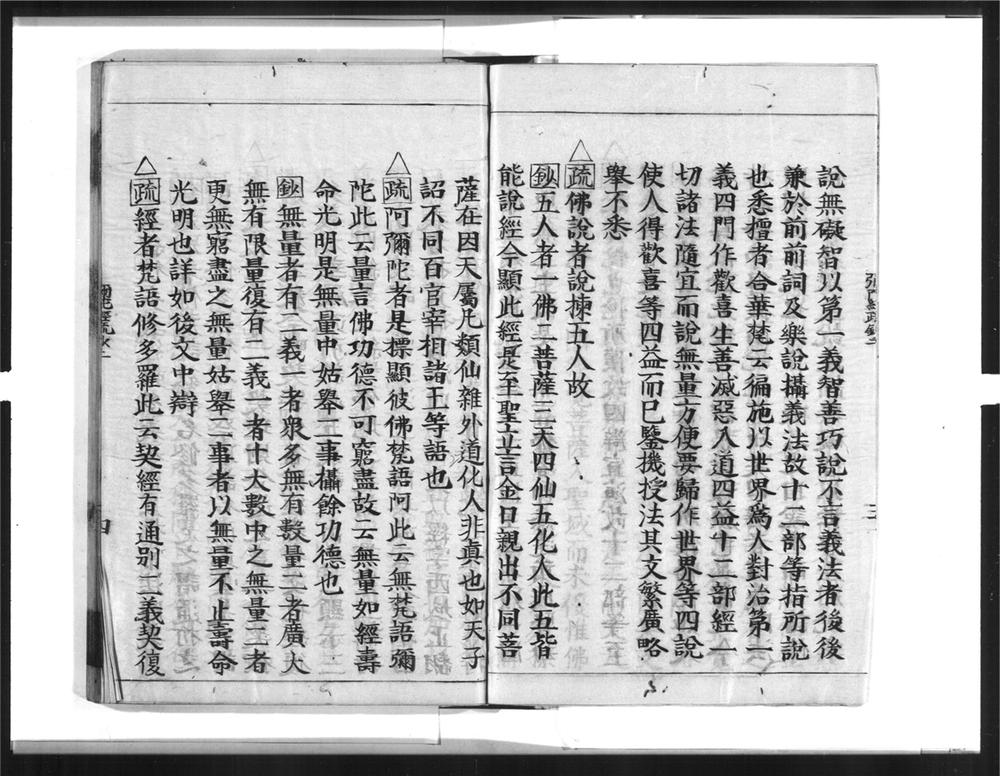 說無礙智以第一義智善巧說不言義法者後後
兼於前前詞及樂說攝義法故十二部等指所說
也悉檀者合華梵云徧施以世界為人對治第一
義四門作歡喜生善滅惡入道四益十二部經一
切諸法隨宜而說無量方便要歸作世界等四說
使人得歡喜等四益而巳鑒機授法其文繁廣略
舉不悉
△疏佛說者說揀五人故
鈔五人者一佛二菩薩三天四仙五化人此五皆
能說經今顯此經是至聖立言金口親出不同菩
薩在因天屬凡類仙雜外道化人非真也如天子
詔不同百官宰相諸王等語也
△疏阿彌陀者是標顯彼佛梵語阿此云無梵語彌
陀此云量言佛功德不可窮盡故云無量如經壽
命光明是無量中姑舉二事攝餘功德也
鈔無量者有二義一者眾多無有數量二者廣大
無有限量復有二義一者十大數中之無量二者
更無窮盡之無量姑舉二事者以無量不止壽命
光明也詳如後文中辯
△疏經者梵語修多羅此云契經有通別二義契復
四